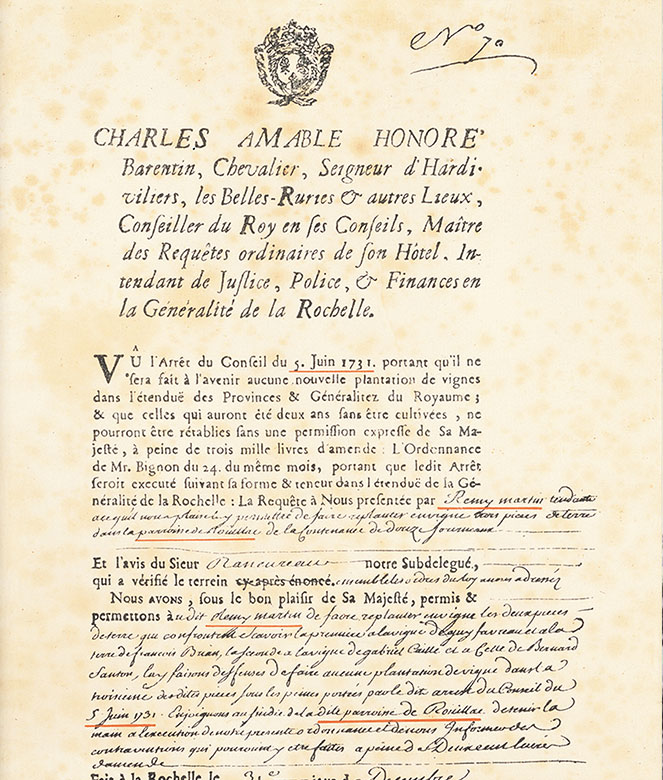 N.º 70
CHARLES AMABLE HONORÉ
Barentin, Chevalier, Seigneur d'Hardi-
viliers, les Belles-Ruries & autres Lieux,
Conſeiller du Roy en ſes Conſeils, Maître
des Requêtes ordinaires de ſon Hôtel, In-
tendant de Juſtice, Police, & Finances en
la Généralité de la Rochelle.
VÛ l'Arrêt du Conſeil du 5. Juin 1731. portant qu'il ne
ſera fait à l'avenir aucune nouvelle plantation de vignes
dans l'étenduë des Provinces & Généralitez du Royaume;
& que celles qui auront été deux ans ſans être cultivées, ne
pourront être rétablies ſans une permiſſion expreſſe de Sa Ma-
jeſté, à peine de trois mille livres d'amende: L'Ordonnance
de Mr. Bignon du 24. du même mois, portant que ledit Arrêt
ſeroit executé ſuivant ſa forme & teneur dans l'étenduë de la Gé-
néralité de la Rochelle: La Requête à Nous preſentée par Remy martin tendante
a ce quil nous plaise luy permettre de faire replanter en vigne trois pieces de terre
dans la parroisse de Rouillac de la Contenance de douze Journeaux
Et l'avis du Sieur Rancureau notre Subdelegué,
qui a vérifié le terrein cy après énoncé. ensemble les ordres du Roy a nous adressez
Nous avons, ſous le bon plaiſir de Sa Majeſté, permis &
permettons audit Remy martin de faire replanter en vigne les deux pieces
de terre qui confrontent scavoir la premiere a la vigne de guy favreau et a la
terre de francois Brian, la seconde a la vigne de gabriel Caillé et a Celle de Bernard
Santon, luy faisons deffenses de faire aucune plantation de vigne dans la
troisieme desdites pieces sous les peines portées par le dit arrest du Conseil du
5 Juin 1731. Enjoignons au Sindic de la dite parroisse de Rouillac de tenir la
main a l'execution de notre presente ordonnance et de nous Informer des
contraventions qui pourroient y etre faites a peine de Deux cent livres
damende
Fait à la Rochelle le 31e Decembre